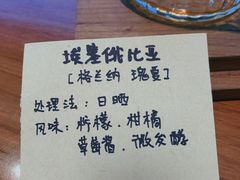 埃塞俄比亚
[格兰纳 瑰夏]
处理法：日晒
风味：柠檬.柑橘
草莓酱.微发酵